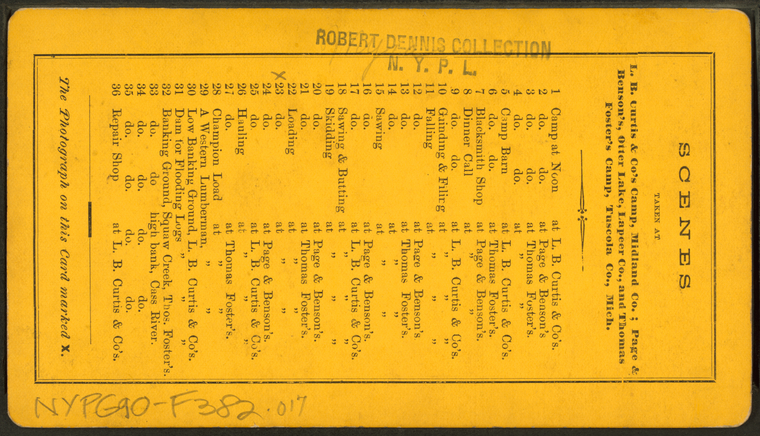 ROBERT DENNIS COLLECTION
N. Y. P. L.
SCENES
TAKEN AT
L. B. Curtis & Co's Camp, Midland Co.; Page &
Benson's, Otter Lake, Lapeer Co., and Thomas
Foster's Camp, Tuscola Co., Mich.
1 Camp at Noon at L. B. Curtis & Co's.
2 do. do. at Page & Benson's.
3 do. do. at Thomas Foster's.
4 do. do. at „ „
5 Camp Barn at L. B. Curtis & Co's.
6 do. do. at Thomas Foster's.
7 Blacksmith Shop at Page & Benson's.
8 Dinner Call at „ „
9 do. do. at L. B. Curtis & Co's.
10 Grinding & Filing at „ „
11 Falling at „ „
12 do. at Page & Benson's.
13 do. at Thomas Foster's.
14 do. at „ „
15 Sawing at „ „
16 do. at Page & Benson's.
17 do. at L. B. Curtis & Co's.
18 Sawing & Butting at „ „
19 Skidding at „ „
20 do. at Page & Benson's.
21 do. at Thomas Foster's.
22 Loading at „ „
X 23 do. at „ „
24 do. at Page & Benson's.
25 do. at L. B. Curtis & Co's.
26 Hauling at „ „
27 do. at Thomas Foster's.
28 Champion Load at „ „
29 A Western Lumberman, „ „
30 Low Banking Ground, L. B. Curtis & Co's.
31 Dam for Flooding Logs „ „
32 Banking Ground, Squaw Creek, Thos. Foster's.
33 do. do high bank, Cass River.
34 do. do. do. do.
35 do. do. do. do.
36 Repair Shop at L. B. Curtis & Co's.
The Photograph on this Card marked X.
NYPG90-F382.017